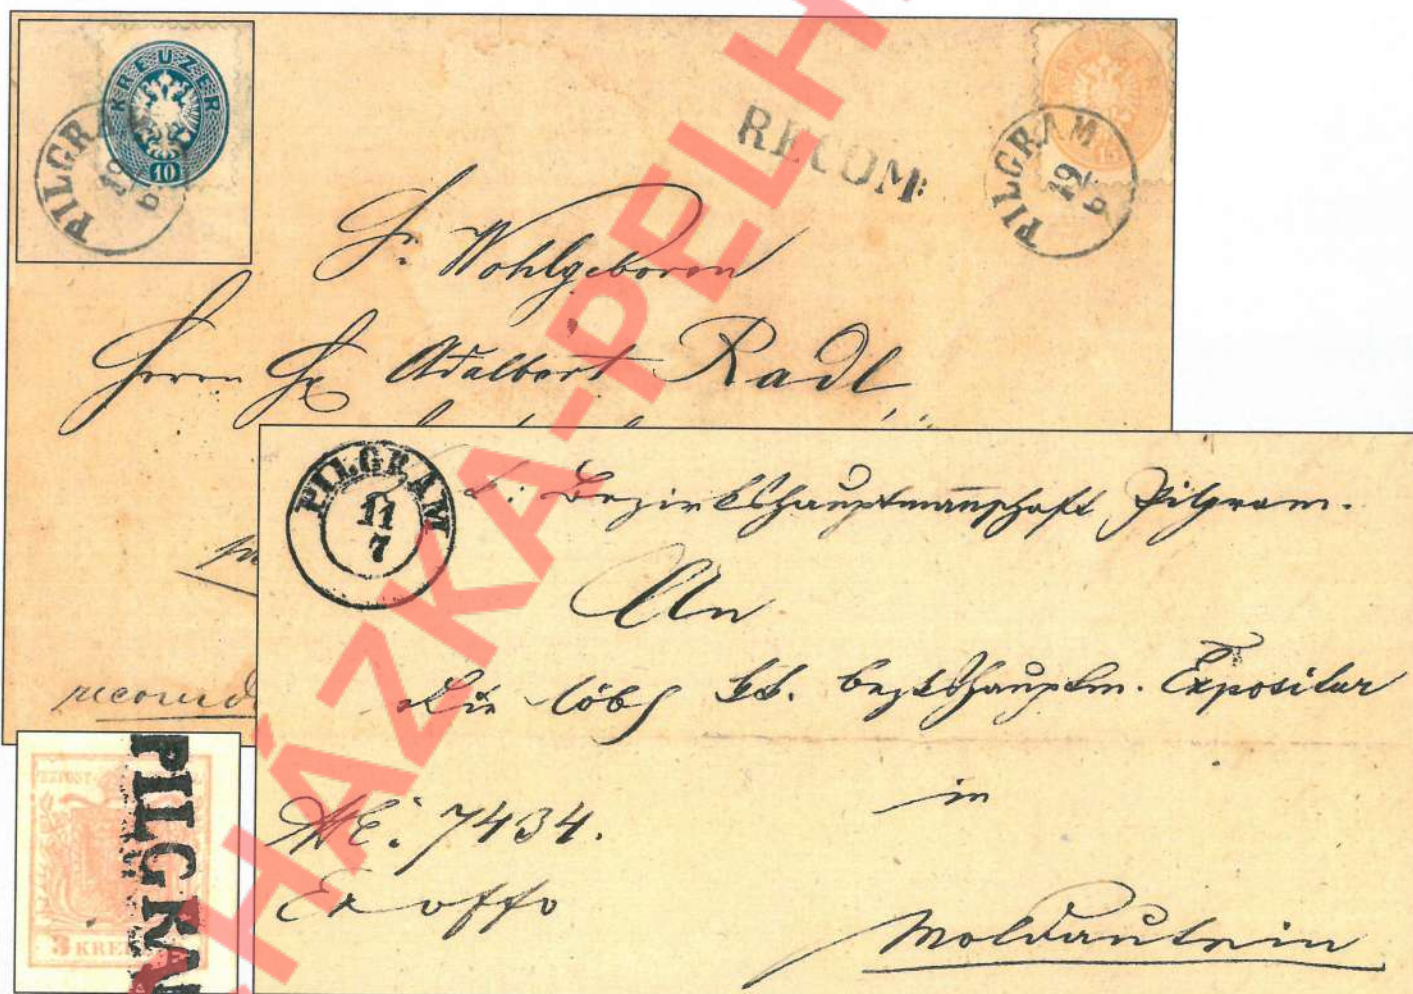 KREUZER
10
PILGRAM
19
RECOM:
PILGRAM
19
Sr. Wohlgeboren
Herrn Adalbert Radl
recomd
PILGRAM
11
7
Bezirkshauptmannschaft Pilgram.
An
Die löbl kk. Bezkshauptm. Expositur
in
NE: 7434.
Ex offo
Moldautein
3 KRE
PILGRAM
HÁZKA-PELH